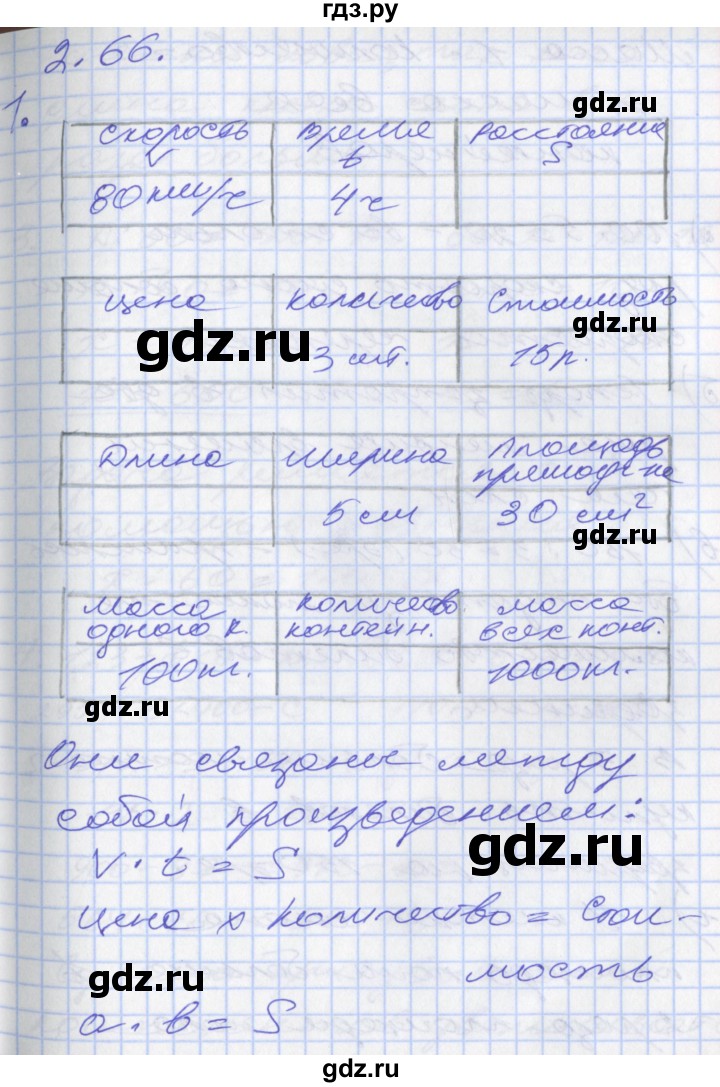 гдз.ру
2.66.
1.
gdz.ru
Скорость Время Расстояние
V t S
80 км/ч 4 ч
Цена Количество Стоимость
gdz.ru
gdz.ru
3 шт. 15 р.
Длина Ширина Площадь
прямоуг-ка
5 см 30 см²
gdz.ru
Масса Количество масса
одного к. контейн. всех конт.
100 кг. 1000 кг.
gdz.ru
Они связаны между
собой произведением:
gdz.ru
V · t = S
Цена x количество = Стои-
мость
gdz.ru
a · b = S
gdz.ru